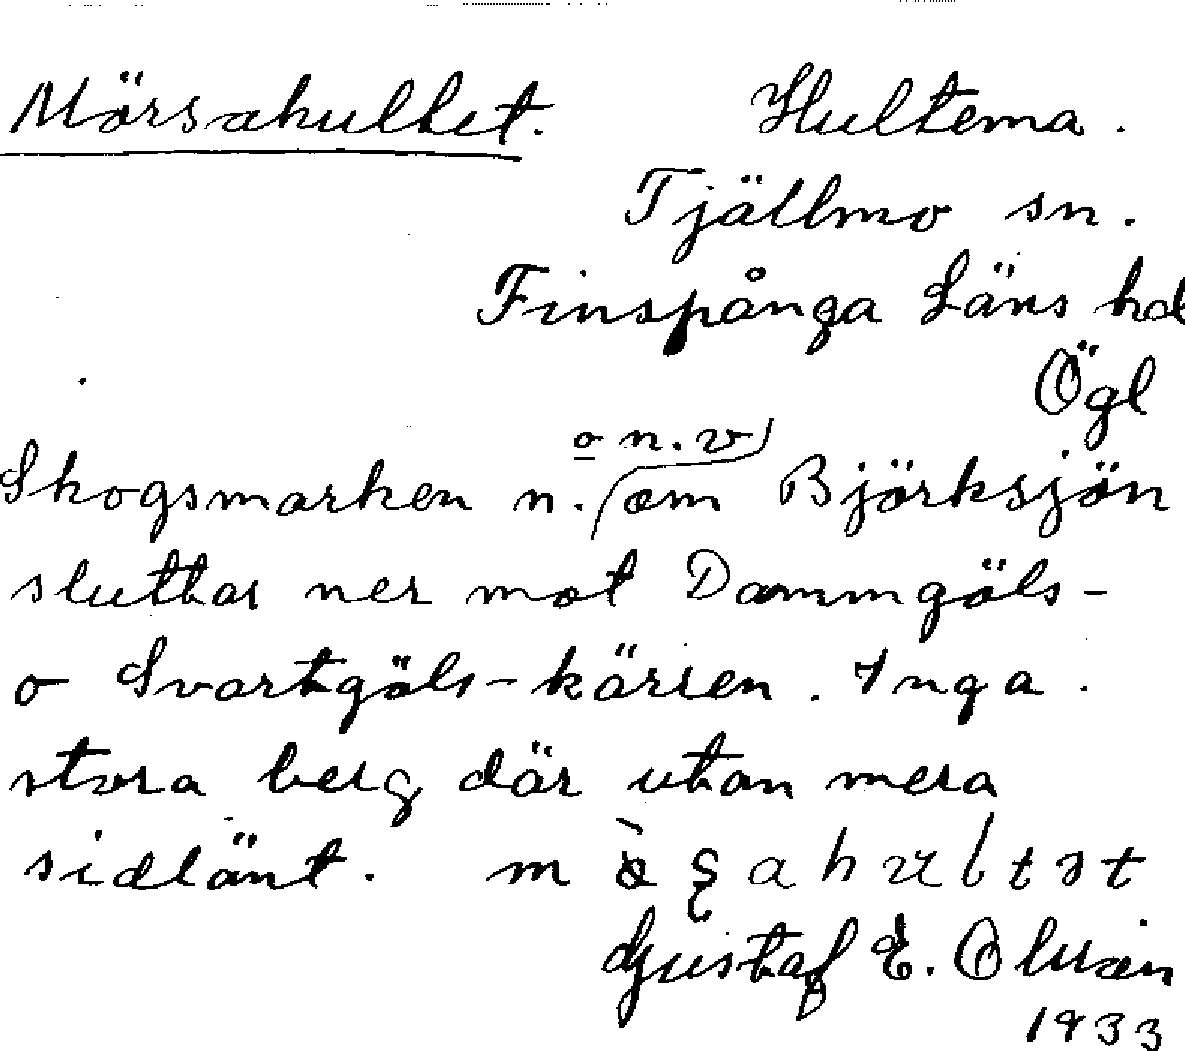 Mörsahultet. Hultema.
Tjällmo sn.
Finspånga Läns hd
Ögl
o n. v
Skogsmarken n. om Björksjön
sluttar ner mot Dammgöls-
o Svartgöls-kärren. Inga
stora berg där utan mera
sidlänt.
Gustaf E.
1933